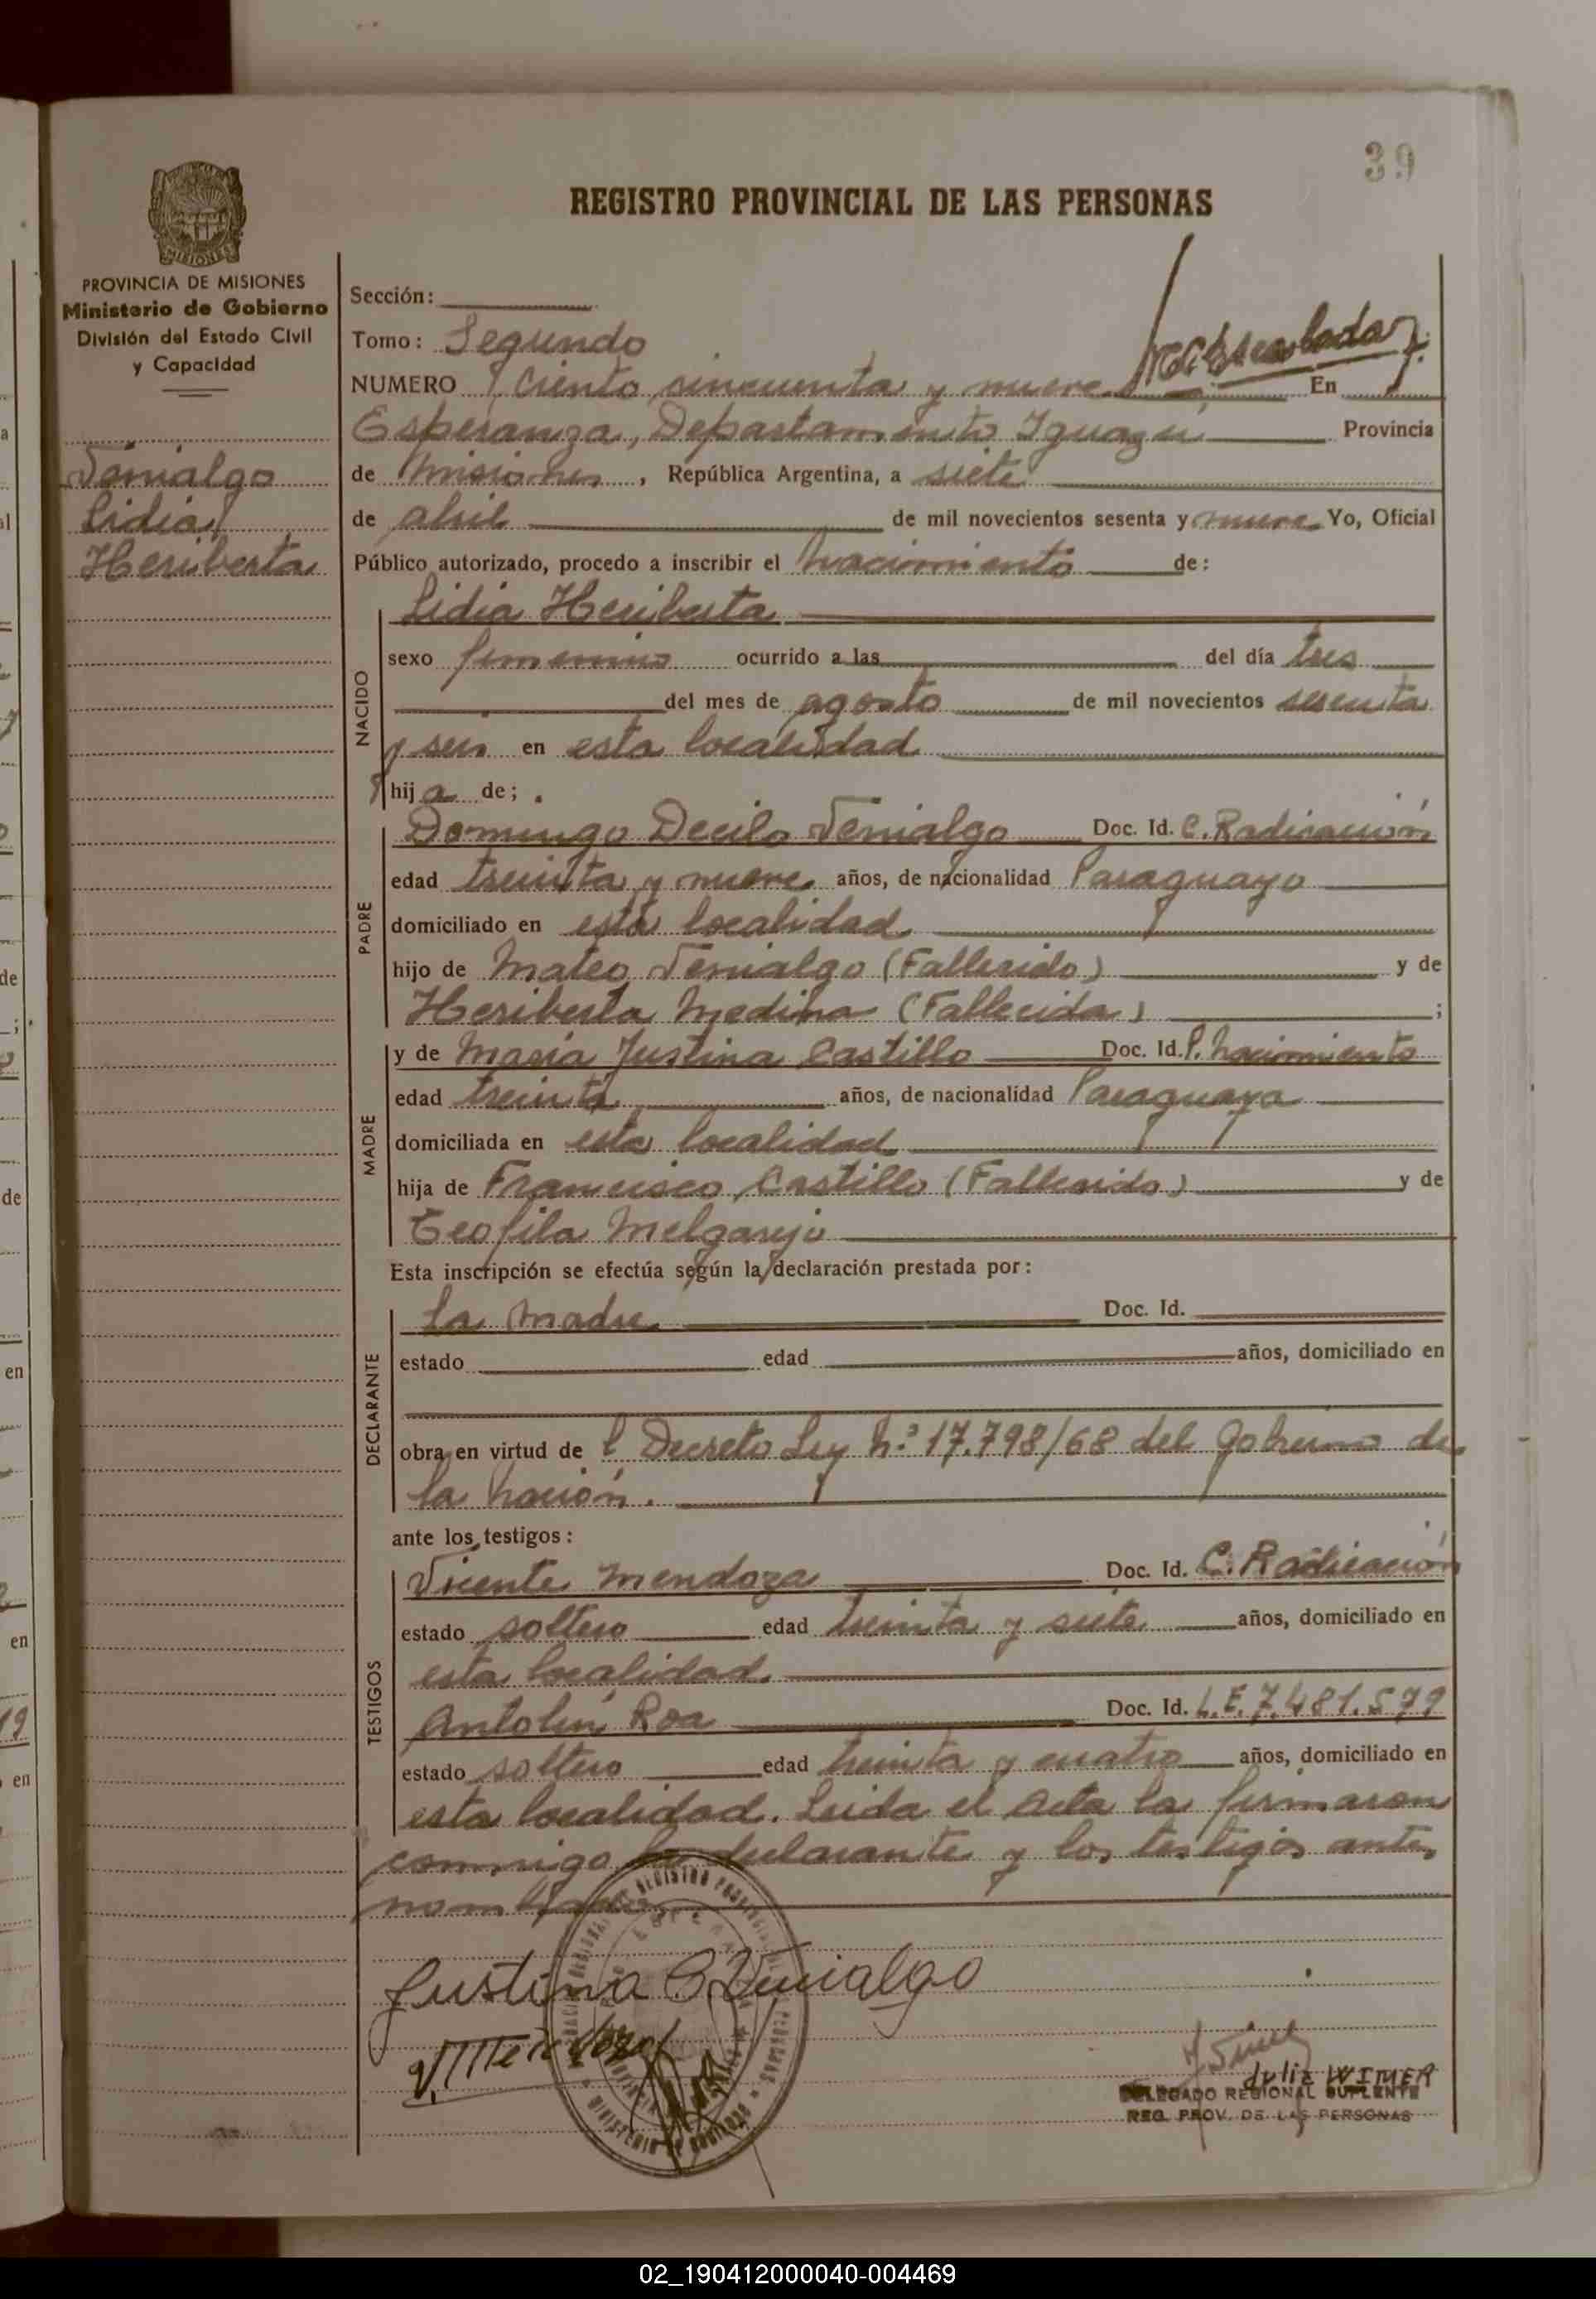 39
REGISTRO PROVINCIAL DE LAS PERSONAS
MISIONES
PROVINCIA DE MISIONES
Ministerio de Gobierno
División del Estado Civil
y Capacidad
Venialgo
Lidia
Heriberta
Sección:
Tomo: Segundo
NUMERO Ciento cincuenta y nueve En
Esperanza, Departamento Iguazú Provincia
de Misiones, República Argentina, a siete
de abril de mil novecientos sesenta y nueve Yo, Oficial
Público autorizado, procedo a inscribir el nacimiento de:
Lidia Heriberta
NACIDO
sexo femenino ocurrido a las del día tres
del mes de agosto de mil novecientos sesenta
y seis en esta localidad
hija de;
PADRE
Domingo Decilo Venialgo Doc. Id. C. Radicación
edad treinta y nueve años, de nacionalidad Paraguayo
domiciliado en esta localidad
hijo de Mateo Venialgo (Fallecido) y de
Heriberta Medina (Fallecida) ;
MADRE
y de María Justina Castillo Doc. Id. P. nacimiento
edad treinta años, de nacionalidad Paraguaya
domiciliada en esta localidad
hija de Francisco Castillo (Fallecido) y de
Teofila Melgarejo
Esta inscripción se efectúa según la declaración prestada por:
DECLARANTE
La Madre Doc. Id.
estado edad años, domiciliado en
obra en virtud del Decreto Ley N.º 17.798/68 del Gobierno de
la Nación.
ante los testigos:
TESTIGOS
Vicente Mendoza Doc. Id. C. Radicación
estado soltero edad treinta y siete años, domiciliado en
esta localidad.
Antolín Roa Doc. Id. L.E. 7.481.579
estado soltero edad treinta y cuatro años, domiciliado en
esta localidad. Leida el Acta la firmaron
conmigo la declarante y los testigos antes
nombrados
Justina C Venialgo
V Mendoza
Julia WIMER
DELEGADO REGIONAL SUPLENTE
REG. PROV. DE LAS PERSONAS
02_190412000040-004469